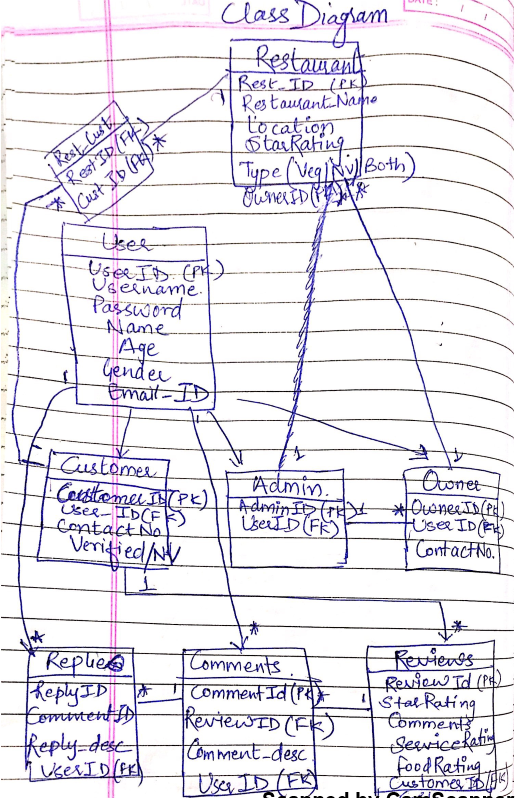 Class Diagram
DATE:
Restaurant
Rest_ID (PK)
Restaurant_Name
Location
StarRating
Type (Veg|NV|Both)
OwnerID(FK)
*
*
1
Rest_Cust
RestID(FK)
Cust_ID(FK)
*
*
User
UserID (PK)
Username
Password
Name
Age
Gender
Email_ID
1
1
Customer
CustomerID(PK)
User_ID(FK)
Contact No
Verified/NV
1
Admin
AdminID(PK)
UserID(FK)
1
1
Owner
OwnerID(PK)
UserID(FK)
ContactNo.
*
1
1
Replies
ReplyID
CommentID
Reply_desc
UserID(FK)
*
*
Comments
CommentId(PK)
ReviewID(FK)
Comment_desc
UserID(FK)
*
1
*
Reviews
ReviewId(PK)
StarRating
Comments
ServiceRating
foodRating
CustomerId(FK)
*
1
Scanned by CamScanner